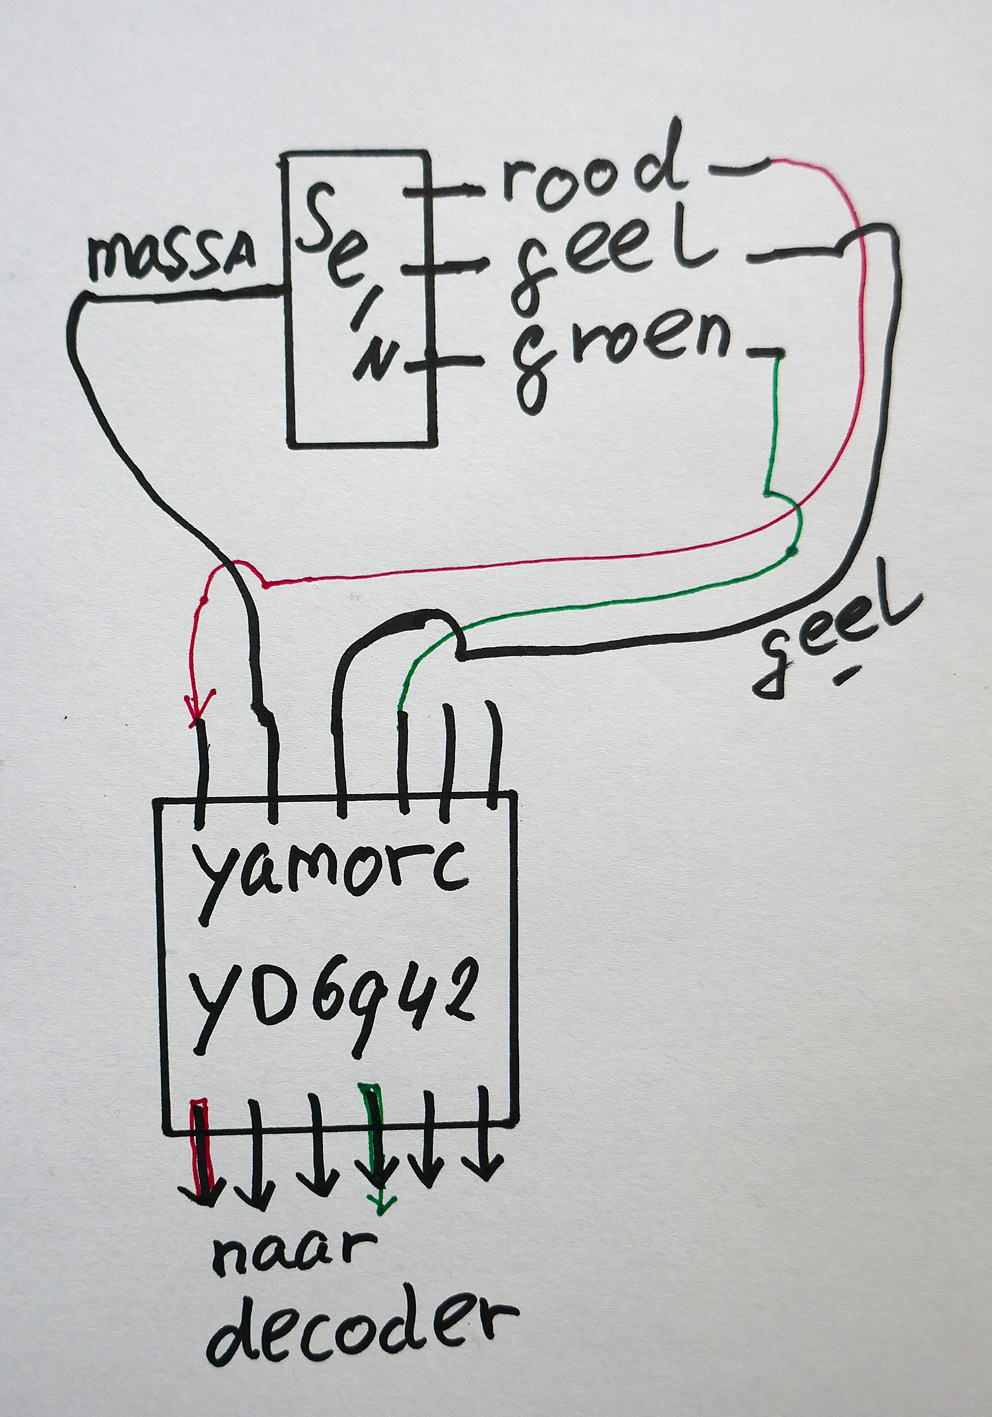 rood
geel
groen
massa
Sein
geel
yamorc
YD6942
naar
decoder